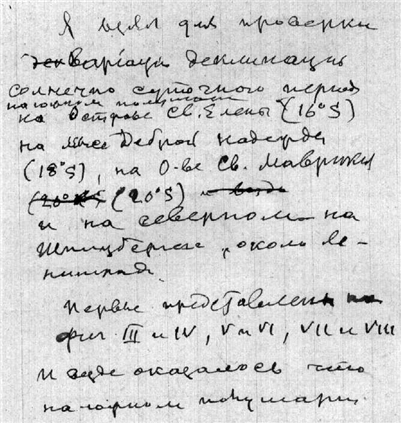 Я взял для проверки
Вариации деклинации
солнечно суточного период
на южном полушарии
на Острове Св. Елены (16°S)
на мысе Доброй надежды
(18°S), на О-ве Св. Маврикия
(20°S)
и на северном на
Шпицбергене, около Ле-
нинграда.
Первые представлены на
фиг. III и IV, V и VI, VII и VIII
и везде оказалось что
на южном полушарии